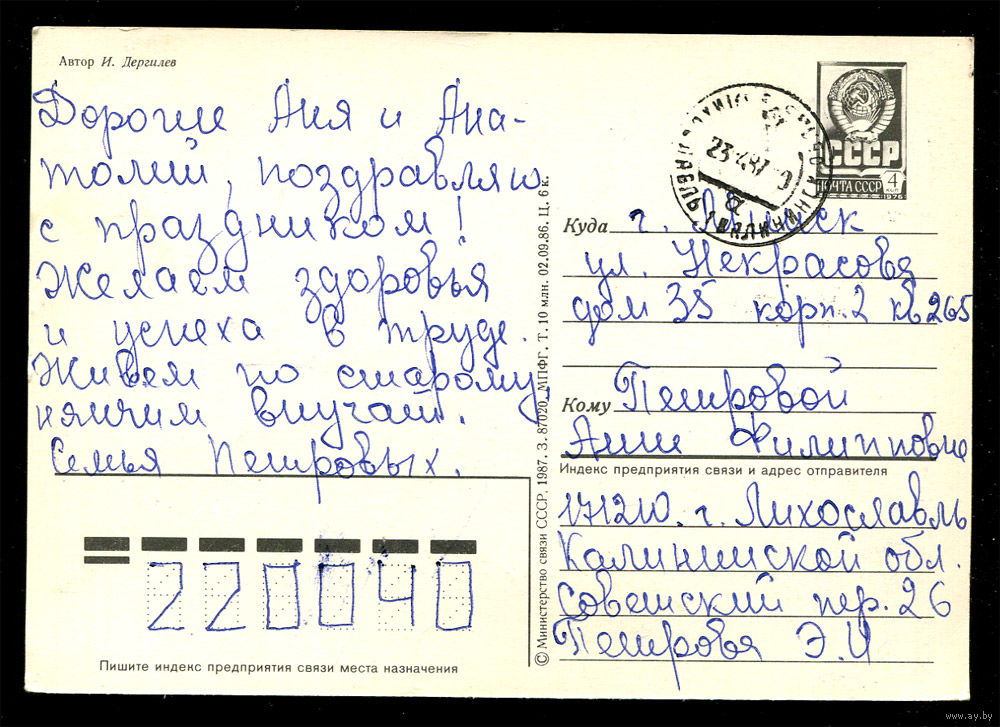 Автор И. Дергилев
Дорогие Аня и Ана-
толий, поздравляю
с праздником!
Желаем здоровья
и успеха в труде.
Живём по старому,
нянчим внучат.
Семья Петровых.
СССР
ПОЧТА СССР
4
1976
Куда г. Минск
ул. Некрасова
дом 35 корп. 2 кв 265
Кому Петровой
Анне Филипповне
Индекс предприятия связи и адрес отправителя
171210. г. Лихославль
Калининской обл.
Советский пер. 26
Петрова Э. И
220040
Пишите индекс предприятия связи места назначения
© Министерство связи СССР. 1987. З. 87020. МПФГ. Т. 10 млн. 02.09.86. Ц. 6 к.
www.ay.by